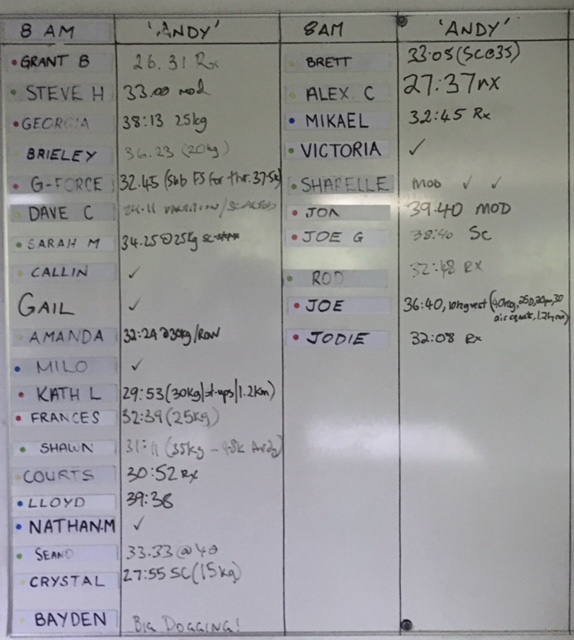 8 AM 'ANDY'
GRANT B 26.31 Rx
STEVE H 33.00 mod
GEORGIA 38:13 25kg
BRIELEY 36.23 (20kg)
G-FORCE 32.45 (Sub FS for thr. 37.5k)
DAVE C
SARAH M 34.25@25kg sc
CALLIN ✓
GAIL ✓
AMANDA 32:24 @30kg/ROW
MILO ✓
KATH L 29:53 (30kg|st-ups|1.2km)
FRANCES 32:39 (25kg)
SHAWN (35kg – Andy)
COURTS 30:52 Rx
LLOYD 39:38
NATHAN.M ✓
SEANO 33.33 @ 40
CRYSTAL 27:55 SC (15kg)
BAYDEN BIG DOGGING!
8AM 'ANDY'
BRETT 33:05 (SC@35)
ALEX. C 27:37 rx
MIKAEL 32:45 Rx
VICTORIA ✓
SHARELLE MOD ✓ ✓
JON 39.40 MOD
JOE G 38:40 SC
ROD 32:48 RX
JOE 36:40, vest (40kg,
air squats, 1.2km)
JODIE 32:08 Rx